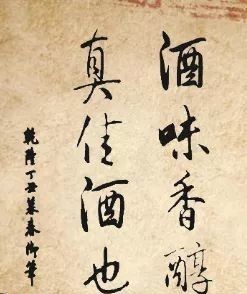 酒味香醇
真佳酒也
乾隆丁丑暮春御筆